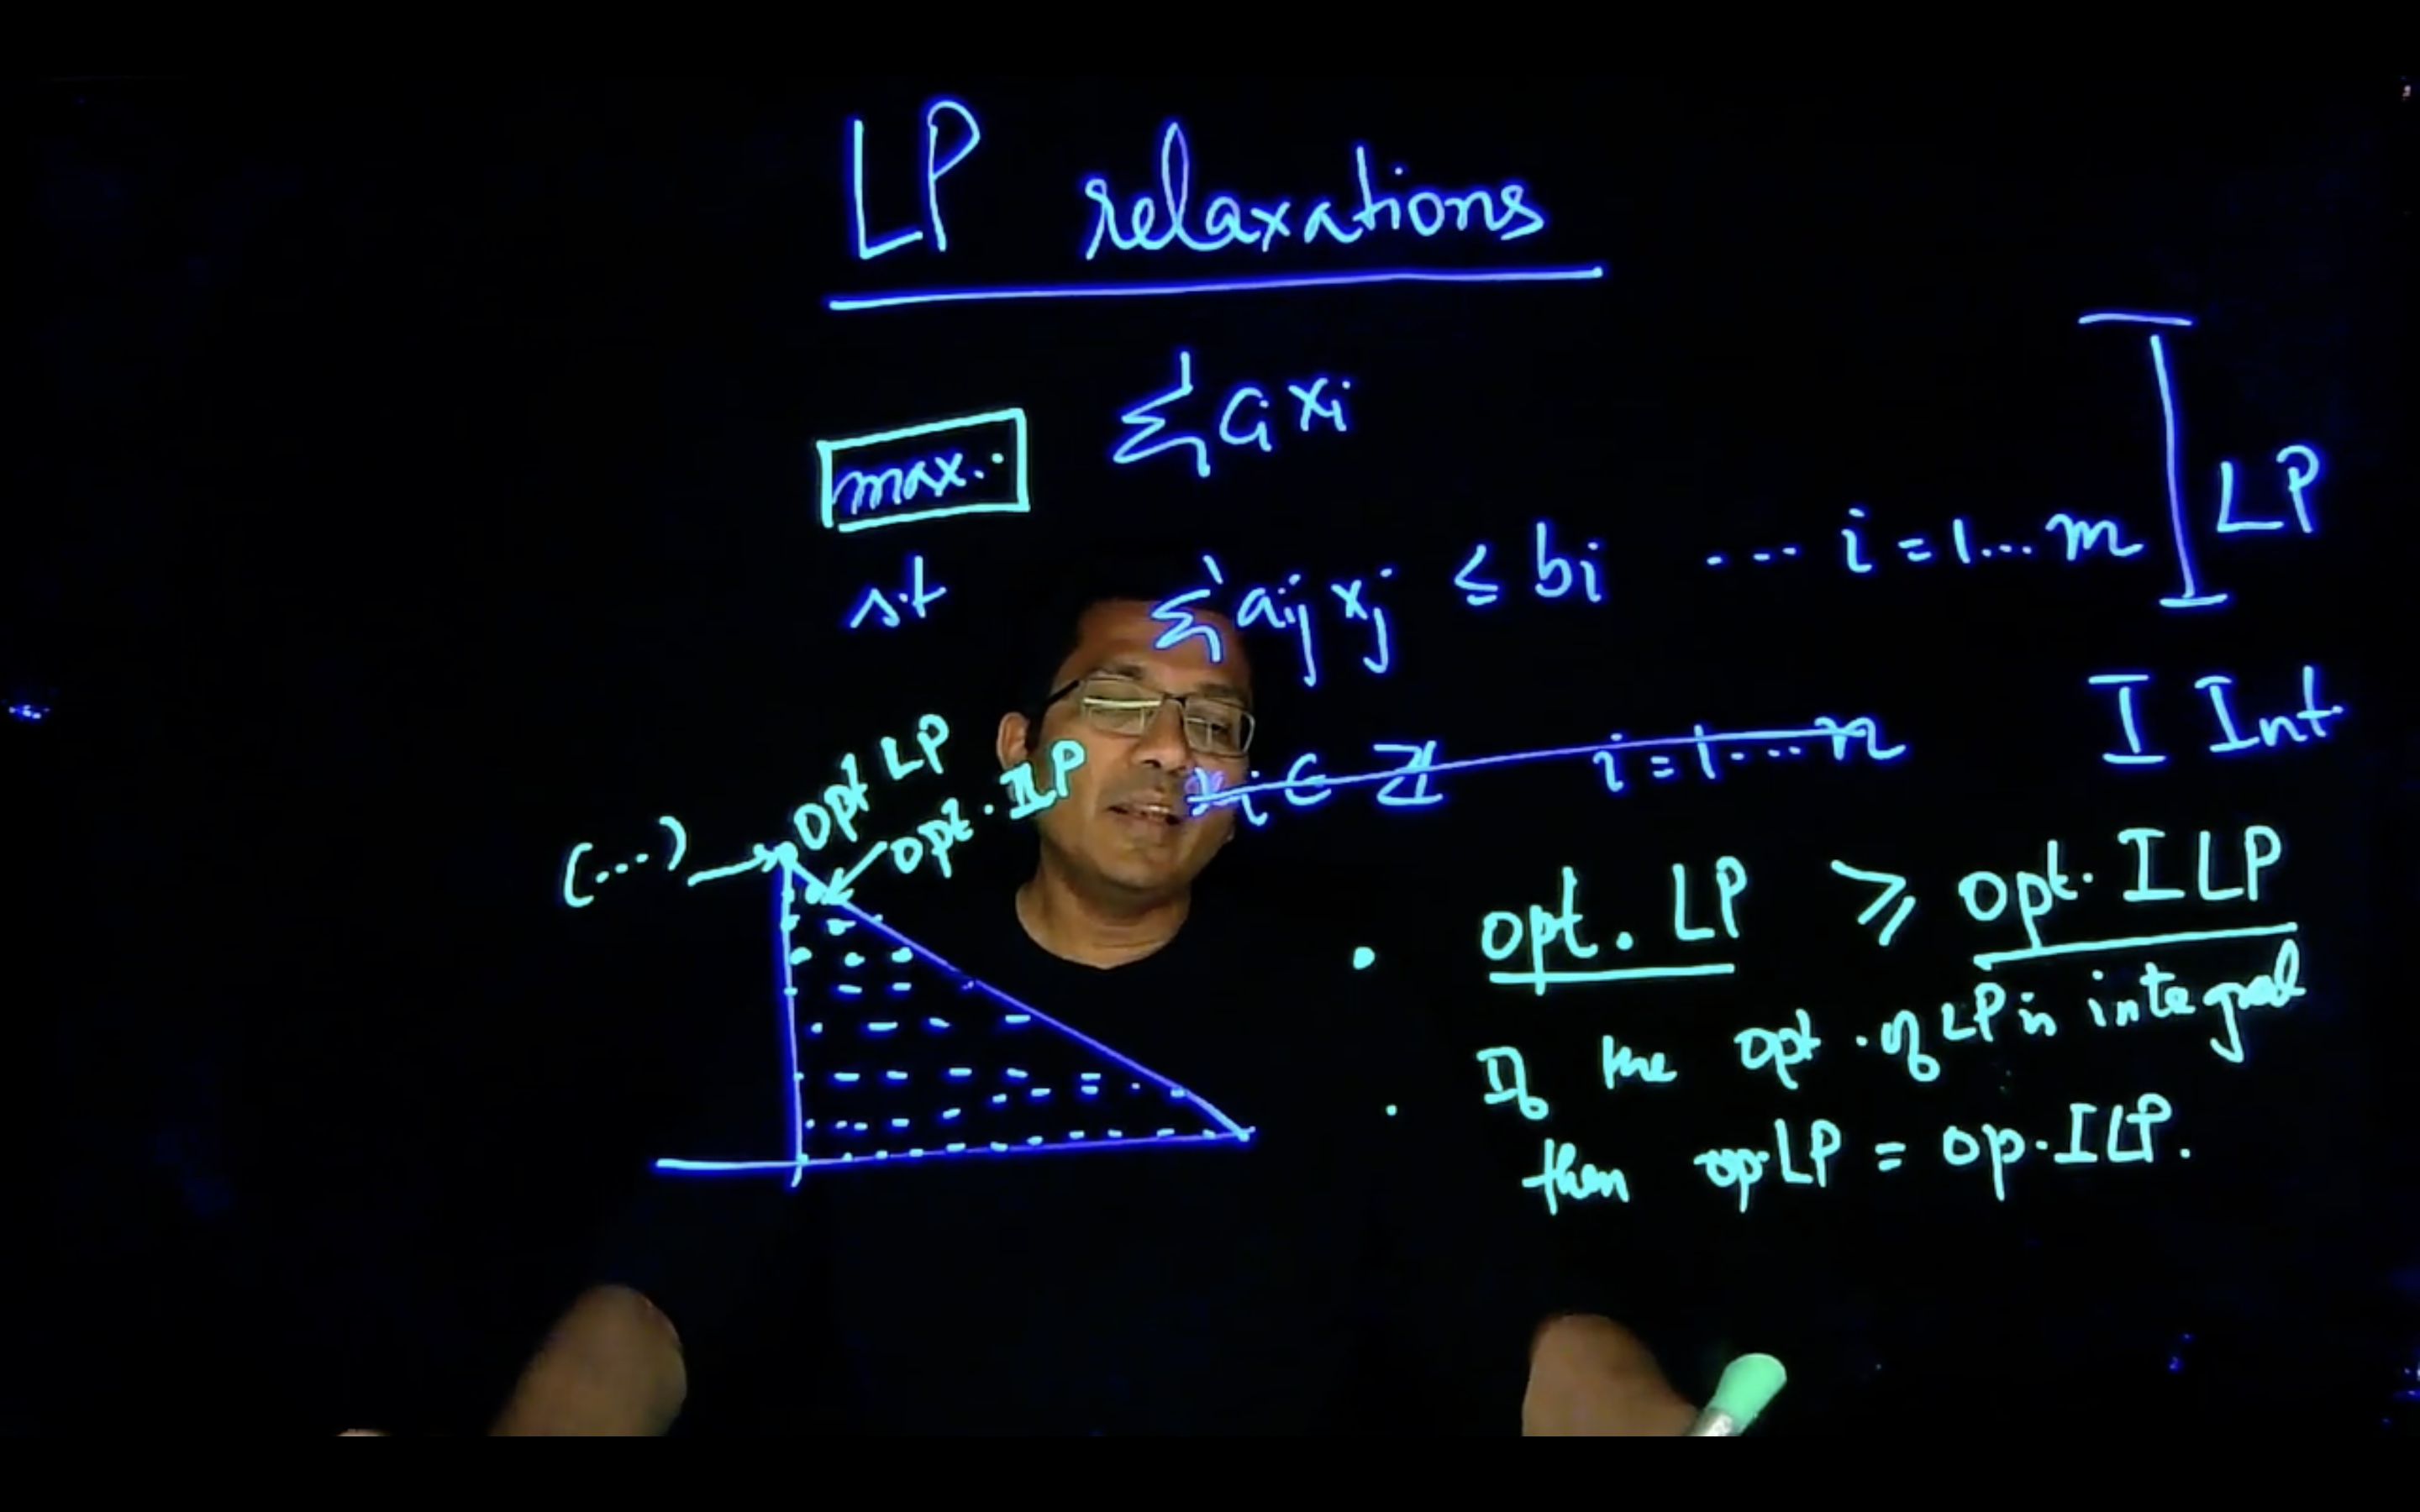 LP relaxations
max. Σ ci xi
s.t Σ aij xj ≤ bi --- i = 1... m
LP
xi ∈ Z i = 1... n
I Int
opt LP
opt. ILP
(...)
• opt. LP ≥ opt. ILP
• If the opt. of LP is integral
then op. LP = op. ILP.